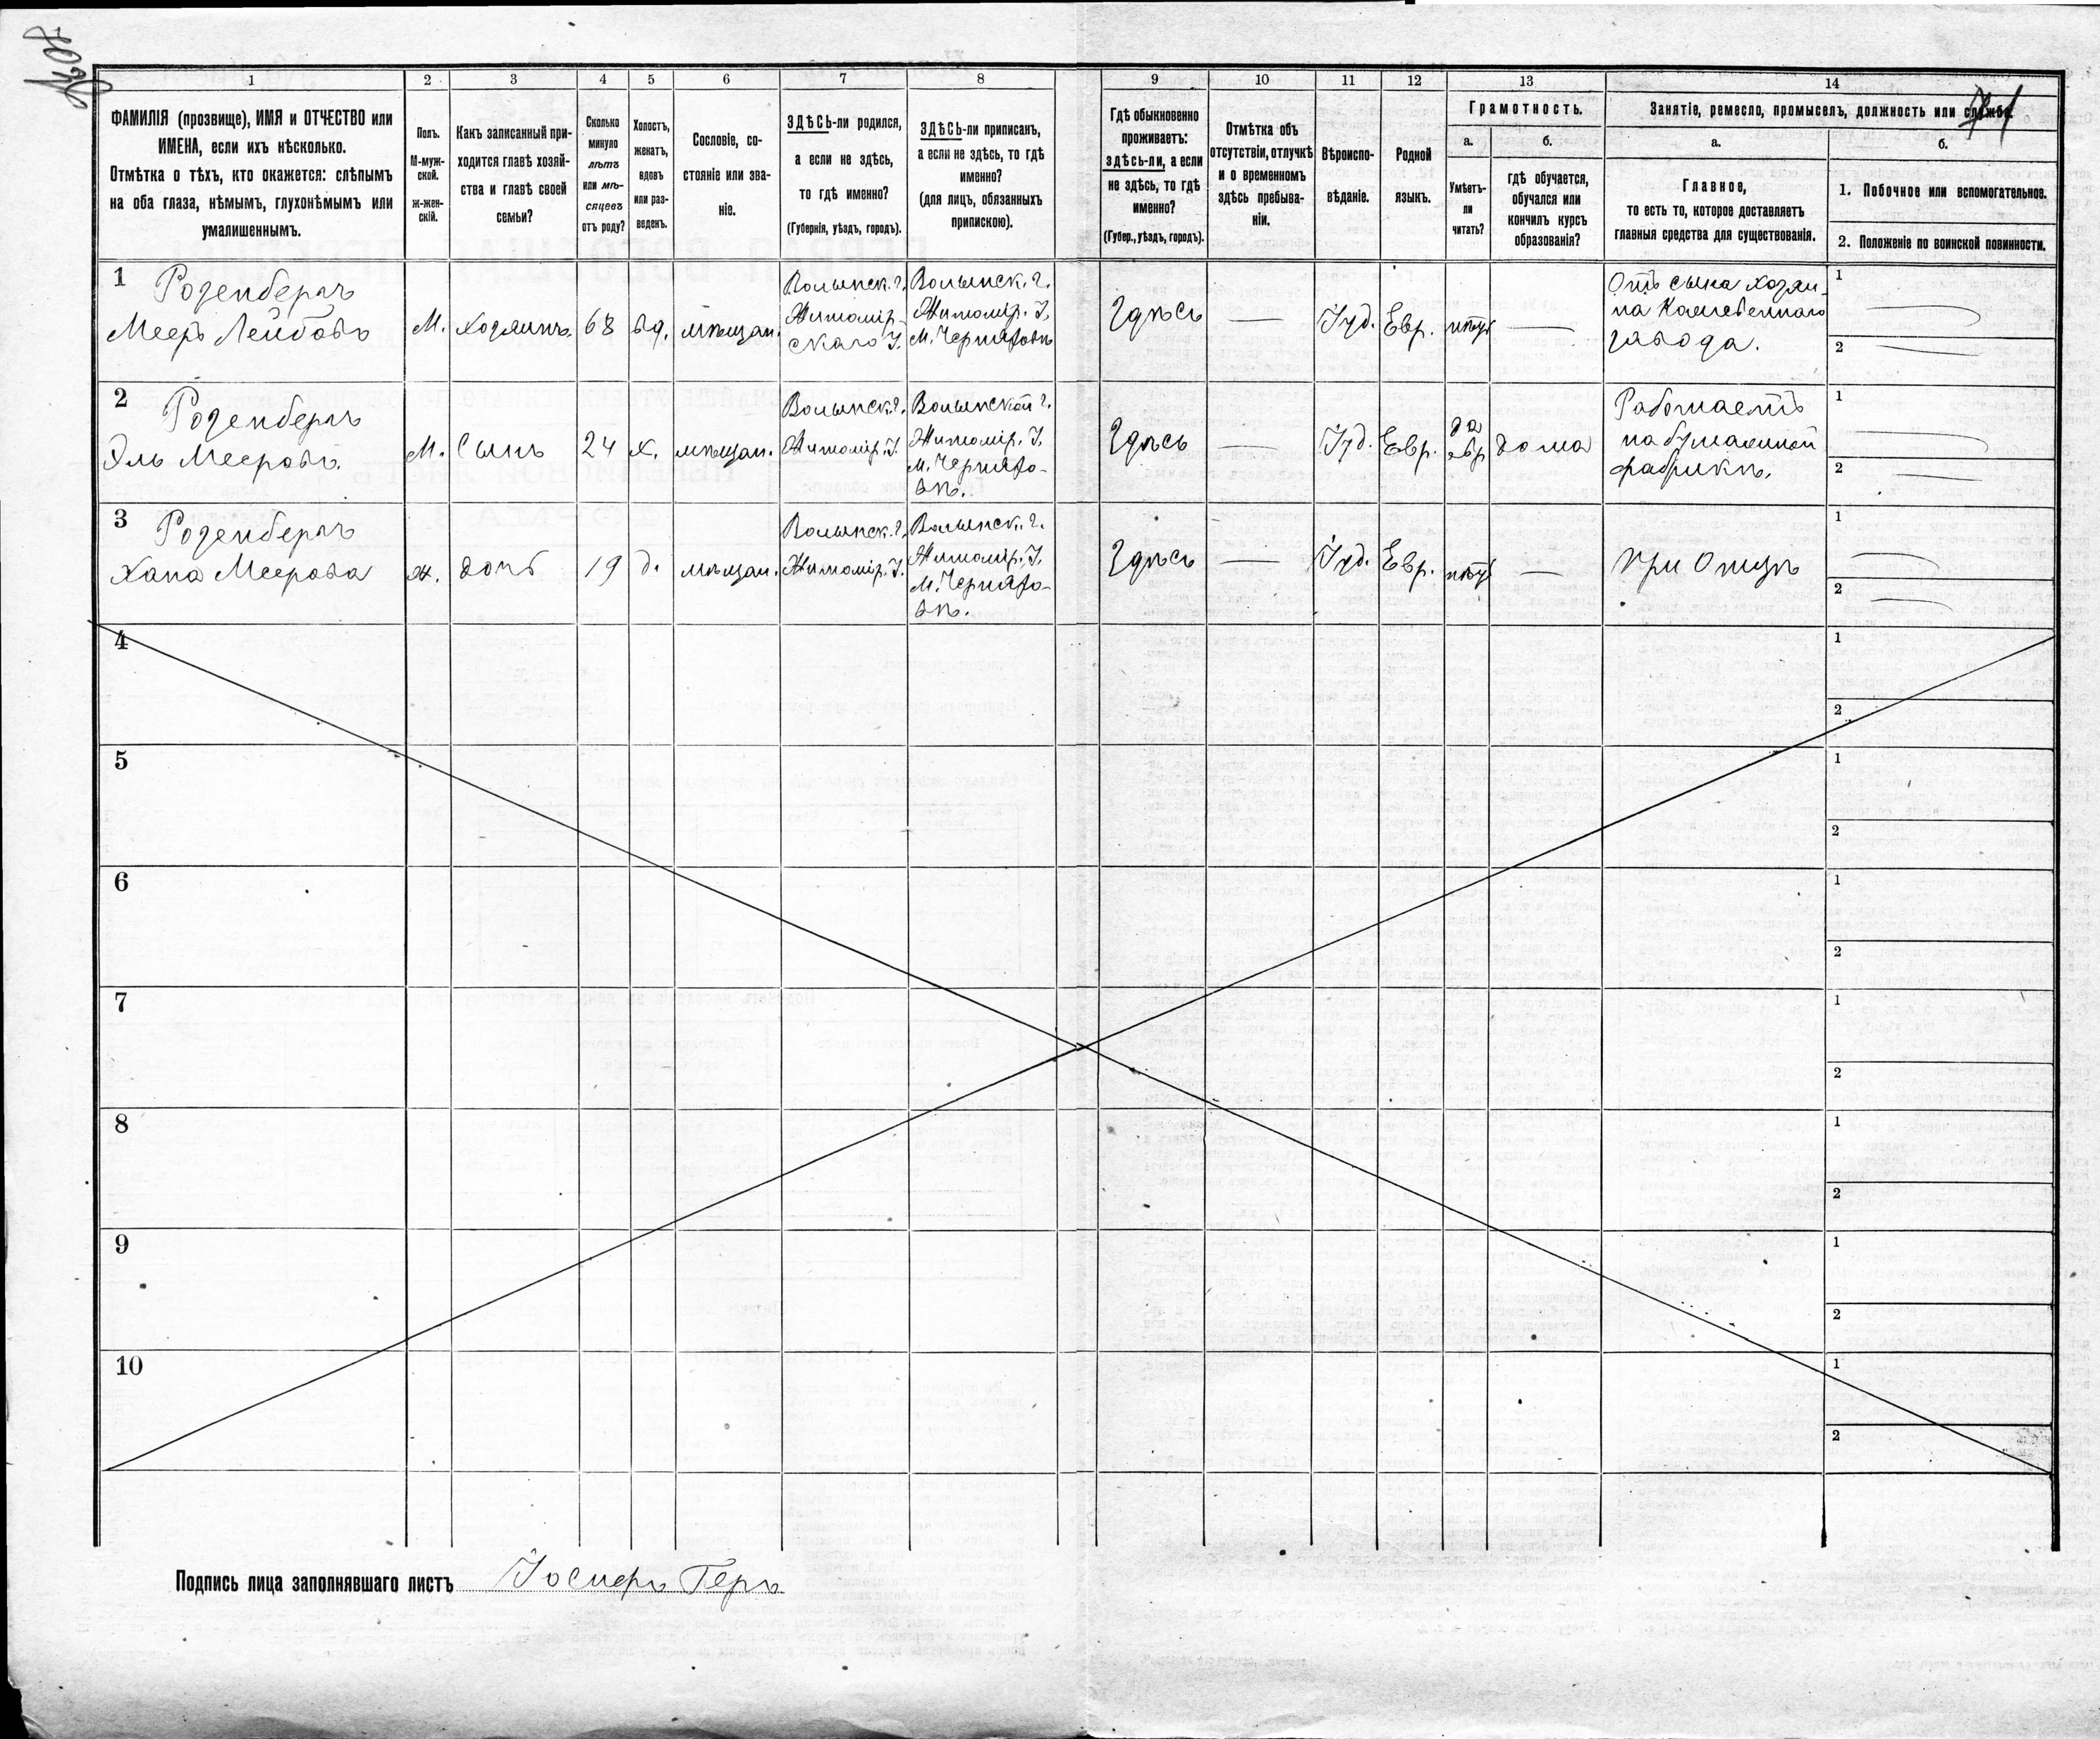 1 2 3 4 5 6 7 8 9 10 11 12 13 14
ФАМИЛІЯ (прозвище), ИМЯ и ОТЧЕСТВО или
ИМЕНА, если ихъ нѣсколько.
Отмѣтка о тѣхъ, кто окажется: слѣпымъ
на оба глаза, нѣмымъ, глухонѣмымъ или
умалишеннымъ.
Полъ.
М-муж-
ской.
ж-жен-
скій.
Какъ записанный при-
ходится главѣ хозяй-
ства и главѣ своей
семьи?
Сколько
минуло
лѣтъ
или мѣ-
сяцевъ
отъ роду?
Холостъ,
женатъ,
вдовъ
или раз-
веденъ.
Сословіе, со-
стояніе или зва-
ніе.
ЗДѢСЬ-ли родился,
а если не здѣсь,
то гдѣ именно?
(Губернія, уѣздъ, городъ).
ЗДѢСЬ-ли приписанъ,
а если не здѣсь, то гдѣ
именно?
(для лицъ, обязанныхъ
припискою).
Гдѣ обыкновенно
проживаетъ:
здѣсь-ли, а если
не здѣсь, то гдѣ
именно?
(Губер., уѣздъ, городъ).
Отмѣтка объ
отсутствіи, отлучкѣ
и о временномъ
здѣсь пребыва-
ніи.
Вѣроиспо-
вѣданіе.
Родной
языкъ.
Грамотность.
а.
Умѣетъ-
ли
читать?
б.
гдѣ обучается,
обучался или
кончилъ курсъ
образованія?
Занятіе, ремесло, промыселъ, должность или служба.
а.
Главное,
то есть то, которое доставляетъ
главныя средства для существованія.
б.
1. Побочное или вспомогательное.
2. Положеніе по воинской повинности.
1
Розенбергъ
Мееръ Лейбовъ
М.
хозяинъ.
68
вд.
мѣщан.
Волынск. г.
Житомір-
скаго У.
Волынск. г.
Житомір. У.
М. Черняховъ
Здѣсь
—
Іуд.
Евр.
нѣтъ
—
Отъ сына хозяи-
на
завода.
1
2
2
Розенбергъ
Эль Мееровъ.
М.
Сынъ
24
х.
мѣщан.
Волынск. г.
Житомір. У.
Волынской г.
Житомір. У.
М. Черняхо-
вѣ.
Здѣсь
—
Іуд.
Евр.
да
евр
дома
Работаетъ
на бумажной
фабрикѣ.
1
2
3
Розенбергъ
Хана Меерова
ж.
дочь
19
д.
мѣщан.
Волынск. г.
Житомір. У.
Волынск. г.
Житомір. У.
М. Черняхо-
вѣ.
Здѣсь
—
Іуд.
Евр.
нѣтъ
—
При Отцѣ
1
2
4
1
2
5
1
2
6
1
2
7
1
2
8
1
2
9
1
2
10
1
2
Подпись лица заполнявшаго листъ Іосифъ Геръ